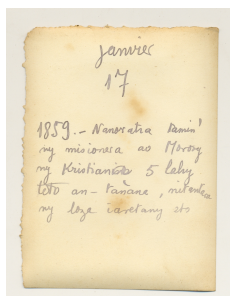 Janvier
17
1859. - Nanoratra tamin'
ny misionera ao Morony
ny Kristiana 5 lahy
teto an-tanana,
ny loza iaretany sts